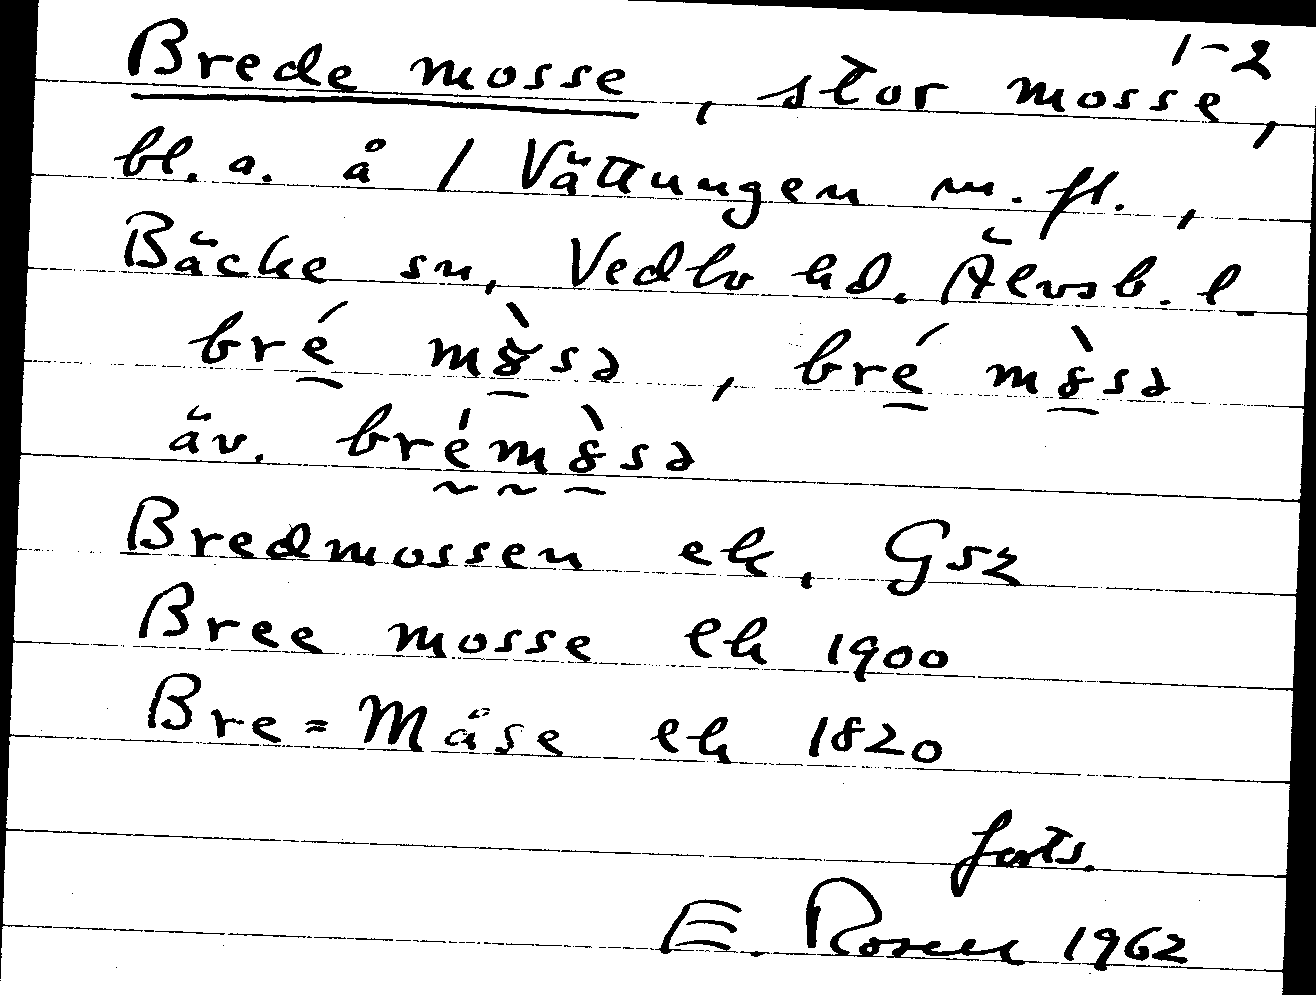 1-2
Brede mosse, stor mosse,
bl. a. å / Vättungen m. fl.,
Bäcke sn, Vedbo hd. Älvsb. l
bré mòsə, bré mòsə
äv. brémòsə
Bredmossen ek. Gsz
Bree mosse ek 1900
Bre=Måse ek 1820
forts.
E. Rosen 1962